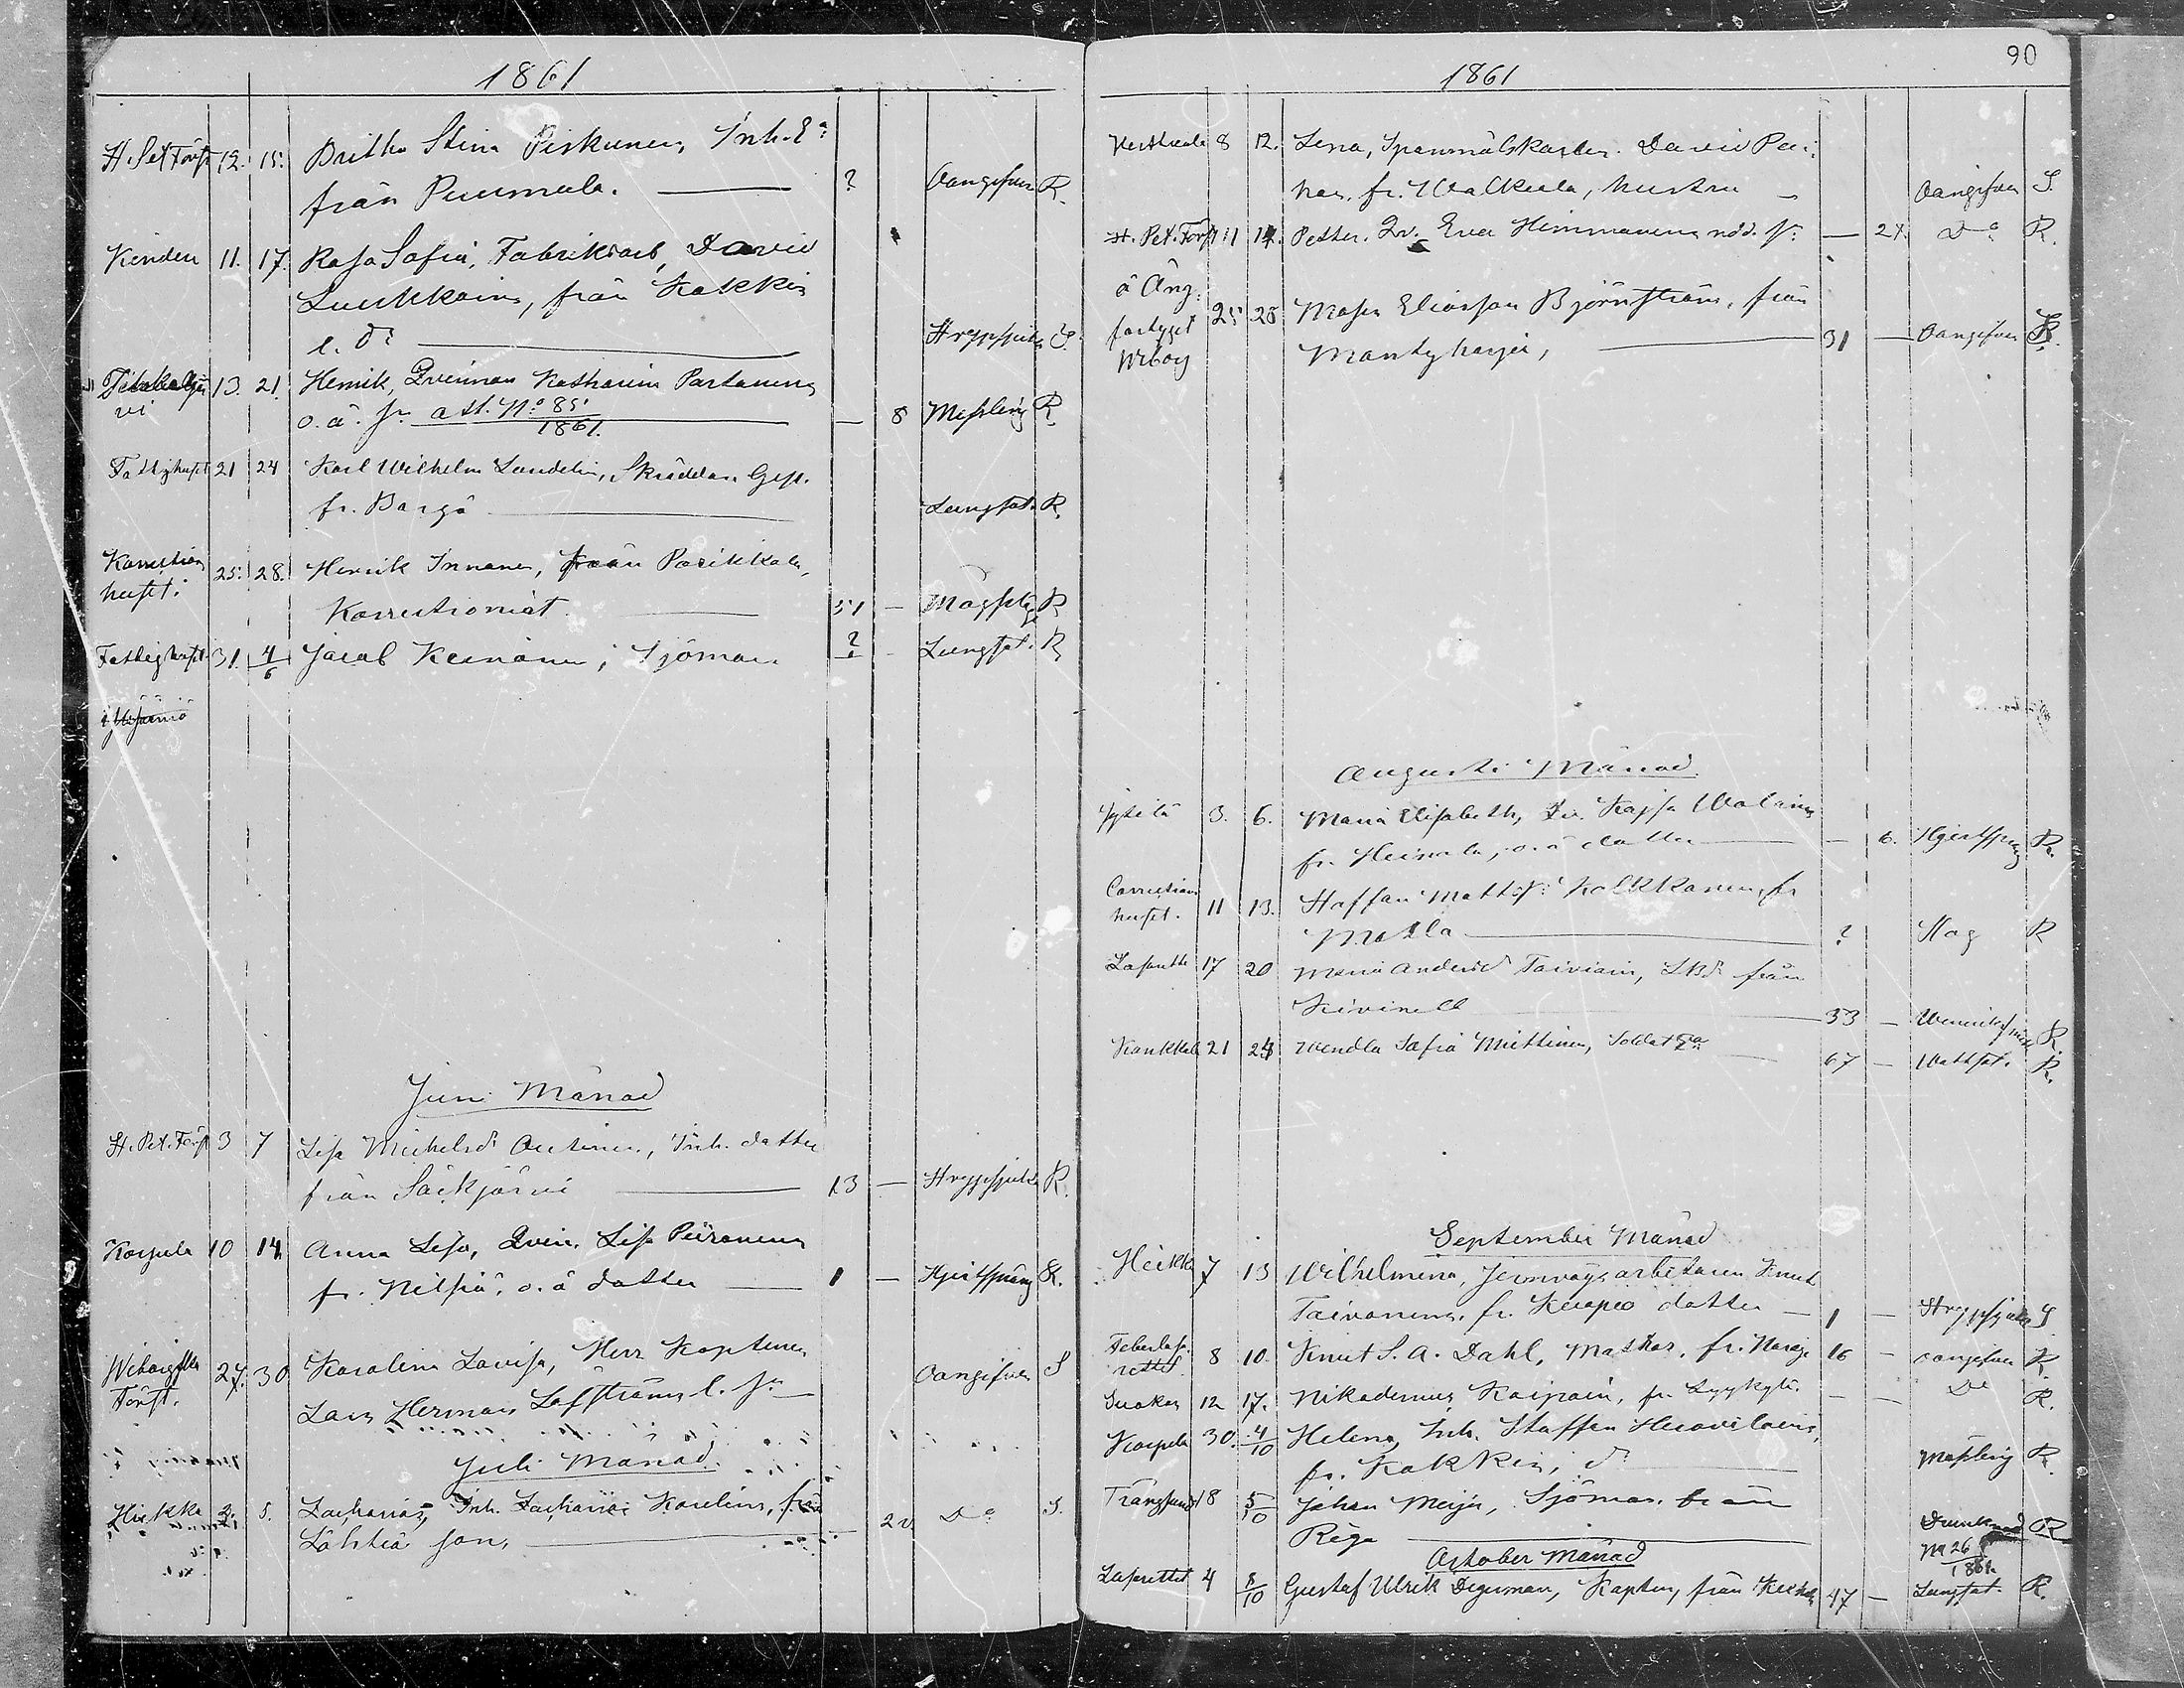 1861
St. Pet. Först. 12. 15. Britha Stina Piskunen, Inh. Ea
från Puumala. ? Oangifven R.
Kinden 11. 17. Kasa Sofia, Fabriksarb. David
Luukkains, från Kakkis
e. dr Strypsjuka S.
13. 21. Henrik, Qvinnan Katharina Partanens
o. ä. sn. att. No 85. 1861. — 8 Messling R.
Fattighuset 21 24 Karl Wilhelm Lundelin, Skräddare Ges.
fr. Borgå Lungsot. R.
Korrektions
huset. 25. 28. Henrik Innanen, från Parikkala,
Korrektionist 51 — R
Fattighuset 31. 4/6 Jacob Keinänen, Sjöman ? - Lungsot. R
Juni Månad
St. Pet. Förs 3 7 Lisa Michelsdr Autinen, Inh. dotter
från Säkjärvi 13 — Strypsjuka R.
Korpela 10 14. Anna Lisa, Qvin. Lisa Piironens
fr. Nilsiä, o. ä dotter 1 — Hjertsprång R.
Wiborgska
Först. 27. 30 Karolina Lovisa, Herr Kaptenen
Lars Herman Löfströms e. fr Oangifven S
Juli Månad.
Hiekka 3. 5. Zacharias, Inh. Zacharias Karelins, från
Lähtiä son, 20 Do S.
90
1861
8 12. Lena, Spanmålskarlen David
fr. Walkiala, hustru Oangifven S.
St. Pet. Förs 11 14. Petter, Qv. Eva Himmanens nöd. sn — 27. Do R.
å Ång-
fartyget
Wiborg 25 28 Moses Eliasson Björnström, från
Mäntyharju, 31 — Oangifven R.
Augusti Månad
3. 6. Maria Elisabeth, Qv. Kajsa Wolains
fr. Heinola, o. ä dotter — 6. Hjertsprång R.
Correctians
huset. 11 13. Staffan Matts Kolkkanen, fr
Mohla ? Slag R
Lasarette 17 20 Maria Andersdr Taiviain, LBdr från
Kivinell 33 — R
Kankkala 21 24 Wendla Sofia Miettinen, Soldat Ea 67 — Wattsot. R.
September Månad
Heikka 7 13 Wilhelmina, Jernvägsarbetaren Knut
Taivanens, fr. Kuopio dotter 1 — Strypsjuka S
8 10. Knut S. A. Dahl, Matros, fr. Norge 16 — Oangifven R
Suokas 12 17. Nikademus Kaipain, fr. Lyykylä. — — Do R.
Korpela 30. 4/10 Helena, Inh. Staffan Huovilains,
fr. Kakkis, dr Messling R.
Trångsund 18 5/10 Johan Meijer, Sjöman från
Riga Drunknad R
No 26 1861.
October Månad
Lasarettet 4 8/10 Gustaf Ulrik Degerman, Kapten, från 47 — Lungsot. R.